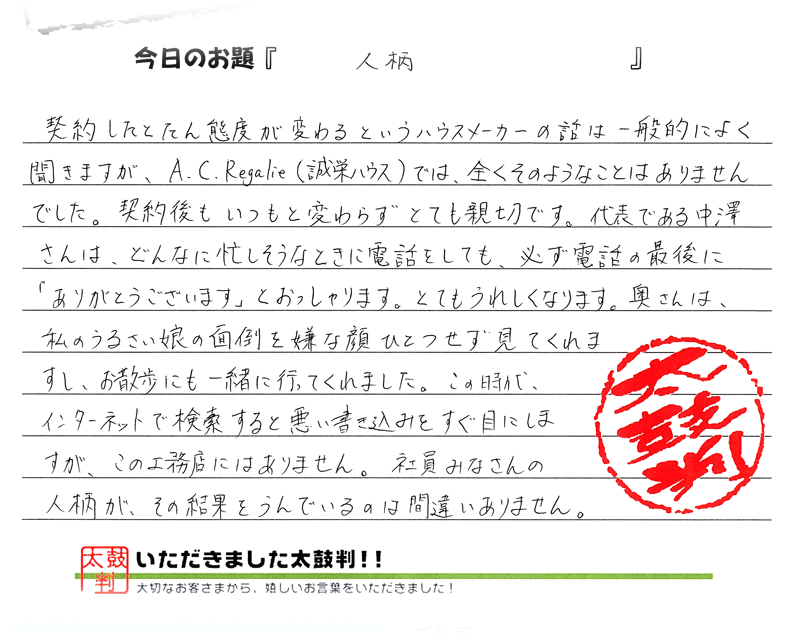 今日のお題『 人柄 』
契約したとたん態度が変わるというハウスメーカーの話は一般的によく
聞きますが、A.C.Regalie(誠栄ハウス)では、全くそのようなことはありません
でした。契約後もいつもと変わらずとても親切です。代表である中澤
さんは、どんなに忙しそうなときに電話をしても、必ず電話の最後に
「ありがとうございます」とおっしゃります。とてもうれしくなります。奥さんは、
私のうるさい娘の面倒を嫌な顔ひとつせず見てくれま
すし、お散歩にも一緒に行ってくれました。この時代、
インターネットで検索すると悪い書き込みをすぐ目にしま
すが、この工務店にはありません。社員みなさんの
人柄が、その結果をうんでいるのは間違いありません。
太鼓判
太鼓判
いただきました太鼓判!!
大切なお客さまから、嬉しいお言葉をいただきました!